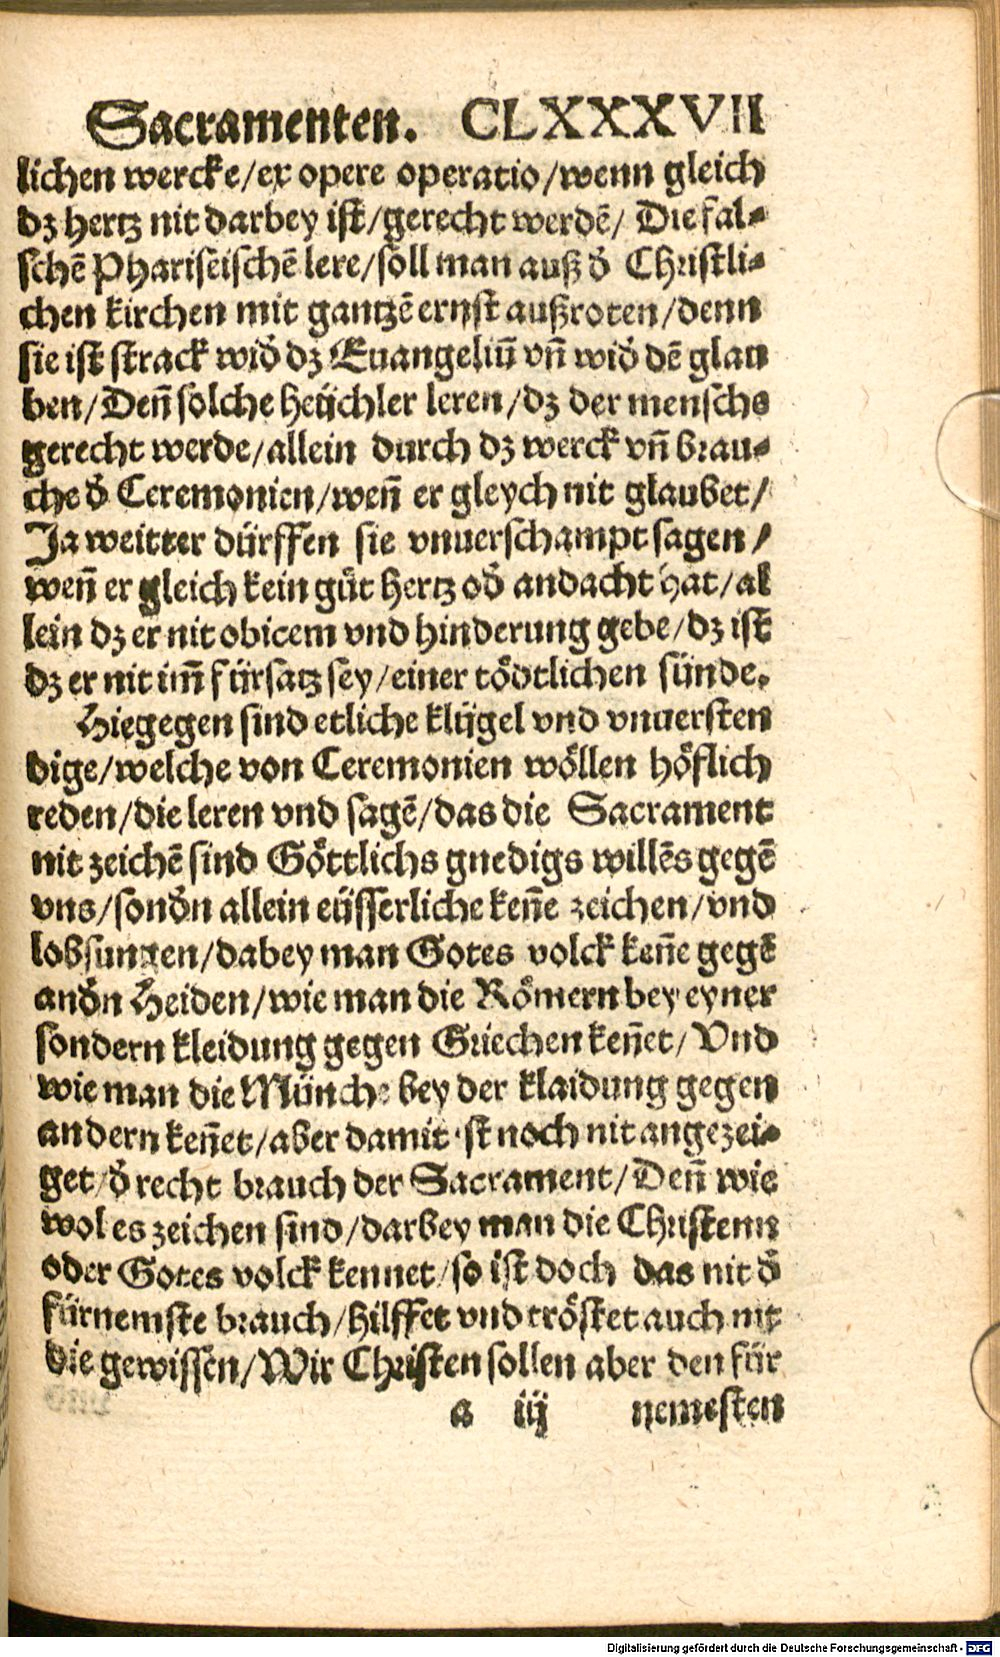 Sacramenten. CLXXXVII
lichen wercke/ex opere operatio/wenn gleich
dz hertz nit darbey ist/gerecht werdẽ/ Die fal⸗
schẽ Phariseischẽ lere/soll man auß d̾ Christli⸗
chen kirchen mit gantzẽ ernst außroten/denn
sie ist strack wid̾ dz Euangeliũ vñ wid̾ dẽ glau
ben/Deñ solche heüchler leren/dz der menschs
gerecht werde/allein durch dz werck vñ brau⸗
che d̾ Ceremonien/weñ er gleych nit glaubet/
Ja weitter dürffen sie vnuerschampt sagen/
weñ er gleich kein gůt hertz od̾ andacht hat/al
lein dz er nit obicem vnd hinderung gebe/dz ist
dz er nit im̃ fürsatz sey/einer tödtlichen sünde.
Hiegegen sind etliche klügel vnd vnuersten
dige/welche von Ceremonien wöllen höflich
reden/die leren vnd sagẽ/das die Sacrament
nit zeichẽ sind Göttlichs gnedigs willẽs gegẽ
vns/sond̾n allein eüsserliche keñe zeichen/vnd
losungen/dabey man Gotes volck keñe gegẽ
and̾n Heiden/wie man die Römern bey eyner
sondern kleidung gegen Griechen keñet/Vnd
wie man die Münche bey der klaidung gegen
andern keñet/aber damit ist noch nit angezei⸗
get/d̾ recht brauch der Sacrament/Deñ wie
wol es zeichen sind/darbey man die Christenn
oder Gotes volck kennet/so ist doch das nit d̾
fürnemste brauch/hilffet vnd tröstet auch nit
die gewissen/Wir Christen sollen aber den für
a iij nemesten
Digitalisierung gefördert durch die Deutsche Forschungsgemeinschaft - DFG